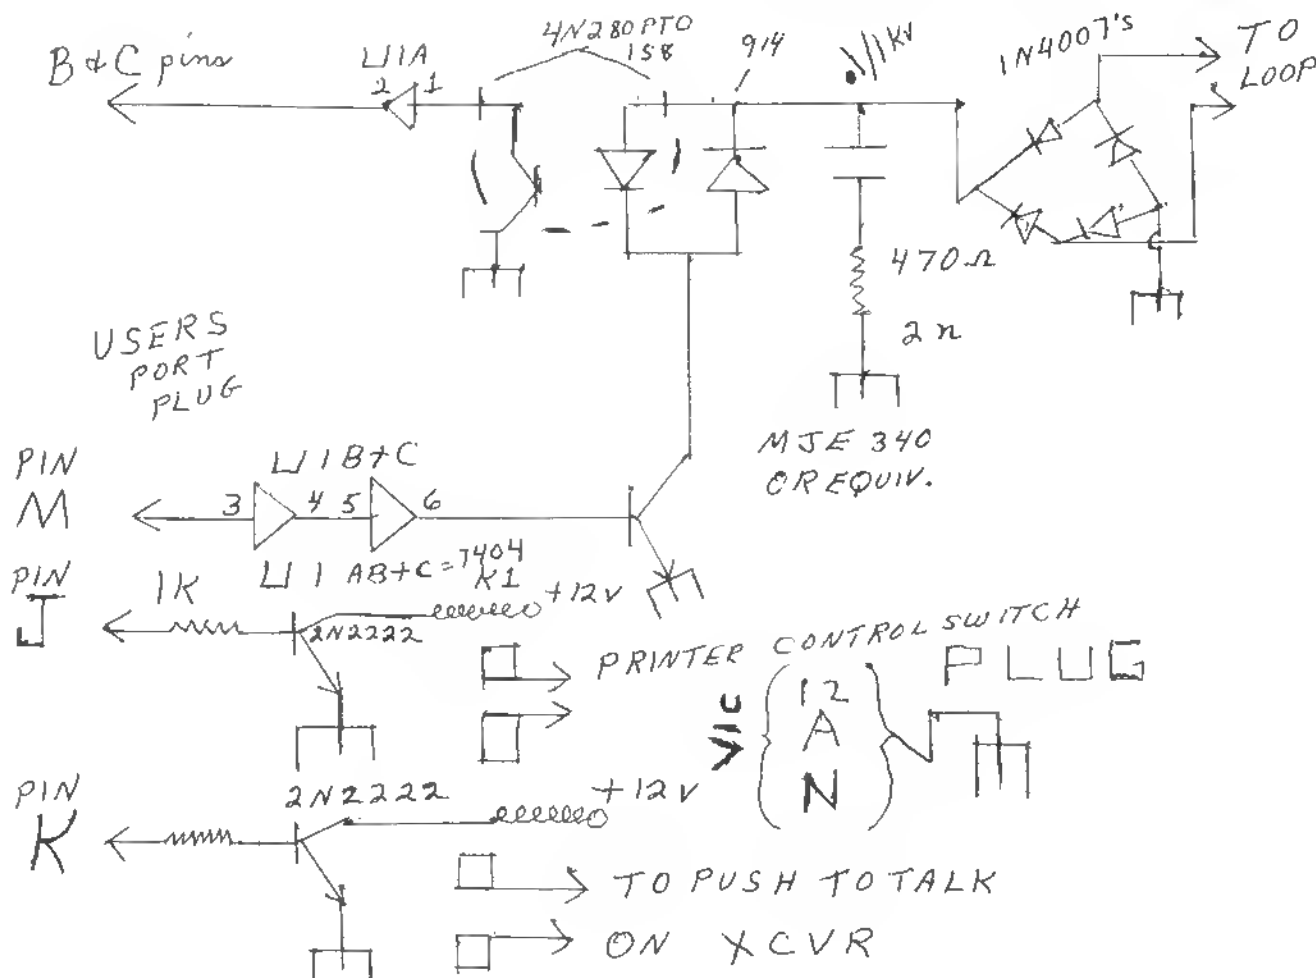 B & C pins
U1A
2 1
4N28 OPTO
ISB
914
.1/1KV
1N4007's
TO
LOOP
470Ω
2n
USERS
PORT
PLUG
MJE 340
OR EQUIV.
PIN
M
U1B+C
3 4 5 6
U1 AB+C = 7404
PIN
J
1K
K1
+12V
2N2222
PRINTER CONTROL SWITCH
PLUG
VIC
12
A
N
PIN
K
2N2222
+12V
TO PUSH TO TALK
ON XCVR